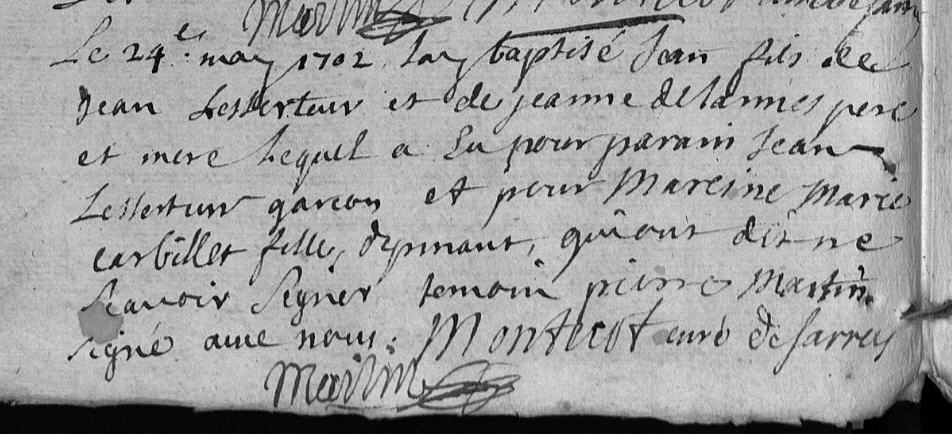 Martin Montecot curé de Sarrey
Le 24e may 1702 Jay baptisé Jean fils de
Jean Lesserteur et de jeanne delannes pere
et mere Lequel a Eu pour parain Jean
Lesserteur garcon et pour Mareine Marie
carbillet fille, qui ont dit ne
scavoir signer temoin pierre Martin
signé avec nous. Montecot curé de Sarrey
Martin